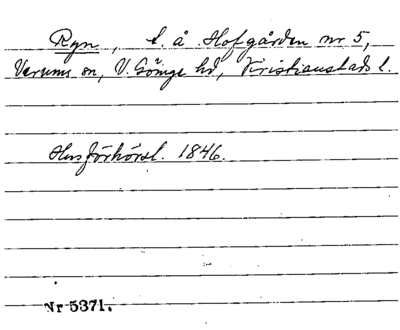 Ryn, t. å Hofgården nr 5,
Verums sn, V. Göinge hd, Kristianstads l.
Husförhörsl. 1846.
Nr 5371.